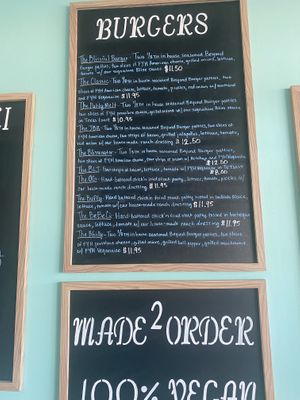 BURGERS
The Blissful Burger - Two ¼ in house seasoned Beyond
Burger patties, two slices of FYH American cheese, grilled onions, lettuce,
tomato w/ our signature Bliss sauce $11.50
The Classic - Two in house seasoned Beyond Burger patties, two
slices of FYH American cheese, lettuce, tomato, pickles, red onion w/ mustard
and FYH Veganaise $11.95
The Patty Melt - Two in house seasoned Beyond Burger patties,
two slices of FYH cheese, grilled onions w/ our signature Bliss sauce
on Texas toast $10.95
The - Two in house seasoned Beyond Burger patties, two slices of
FYH cheese, two strips of bacon, grilled jalapeños, lettuce, tomato,
red onion w/ our house-made ranch dressing $12.50
The - Two in house seasoned Beyond Burger patties, two
slices of FYH American cheese, four strips of bacon w/ ketchup and FYH Veganaise
$12.50
The BLT - Four strips of bacon, lettuce, tomato w/ FYH Veganaise
$8.00
The - Hand-battered chick'n fried patty, lettuce, tomato, pickles w/
our house-made ranch dressing $11.95
The Buffy - Hand-battered chick'n fried patty tossed in buffalo sauce,
lettuce, tomato w/ our house-made ranch dressing $11.95
The - Hand-battered chick'n fried patty tossed in barbeque
sauce, lettuce, tomato w/ our house-made ranch dressing $11.95
The Philly - Two in house seasoned Beyond Burger patties, two slices
of FYH provolone cheese, grilled onions, grilled bell pepper, grilled mushrooms
w/ FYH Veganaise $11.95
MADE 2 ORDER
100% VEGAN